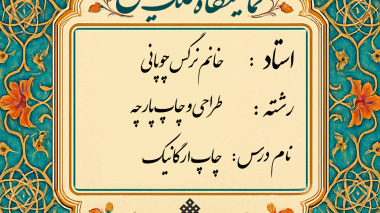 نمایشگاه
استاد : خانم نرگس چوپانی
رشته : طراحی و چاپ پارچه
نام درس : چاپ ارگانیک